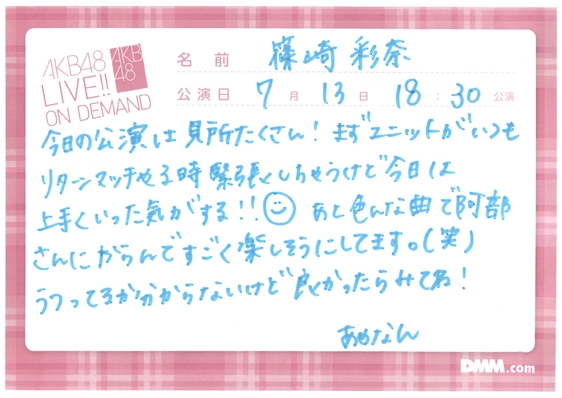 AKB48
LIVE!!
ON DEMAND
AKB
48
名前 篠崎 彩奈
公演日 7月 13日 18:30 公演
今日の公演は見所たくさん！まずユニットがいつも
リターンマッチやる時緊張しちゃうけど今日は
上手くいった気がする！！ あと色んな曲で阿部
さんにからんですごく楽しそうにしてます。(笑)
うつってるか分からないけど良かったらみてね！
あやなん
DMM.com